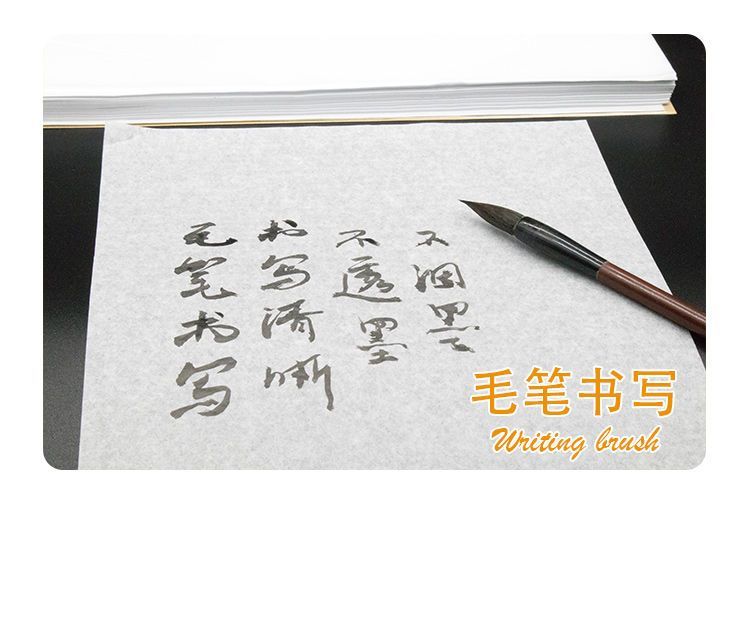 毛笔书写
书写清晰
不透墨
不洇墨
毛笔书写
Writing brush